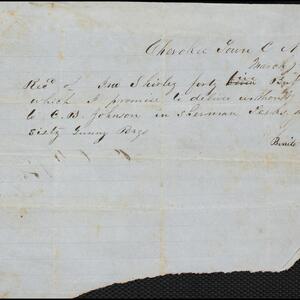 Cherokee Town C N
March
Recd of Jno Shirley forty five
which I promise to deliver without
to C. B. Johnson in Sherman Texas,
Sixty Gunny Bags